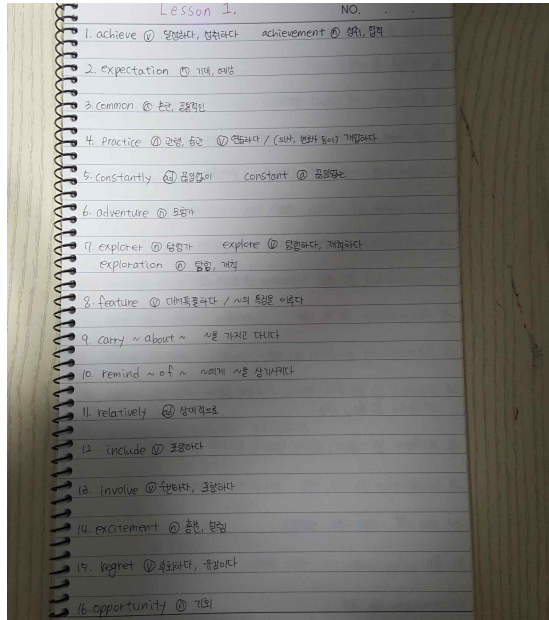 Lesson 1.
NO. . .
1. achieve ⓥ 달성하다, 성취하다 achievement ⓝ 성취, 업적
2. expectation ⓝ 기대, 예상
3. common ⓐ 흔한, 공통적인
4. Practice ⓝ 관행, 습관 ⓥ 연습하다 / (의사, 변호사 등이) 개업하다
5. constantly ⓐⓓ 끊임없이 constant ⓐ 끊임없는
6. adventure ⓝ 모험가
7. explorer ⓝ 탐험가 explore ⓥ 탐험하다, 개척하다
exploration ⓝ 탐험, 개척
8. feature ⓥ 대서특필하다 / ~의 특징을 이루다
9. carry ~ about ~ ~을 가지고 다니다
10. remind ~ of ~ ~에게 ~을 상기시키다
11. relatively ⓐⓓ 상대적으로
12. include ⓥ 포함하다
13. involve ⓥ 수반하다, 포함하다
14. excitement ⓝ 흥분, 설렘
15. regret ⓥ 후회하다, 유감이다
16. opportunity ⓝ 기회